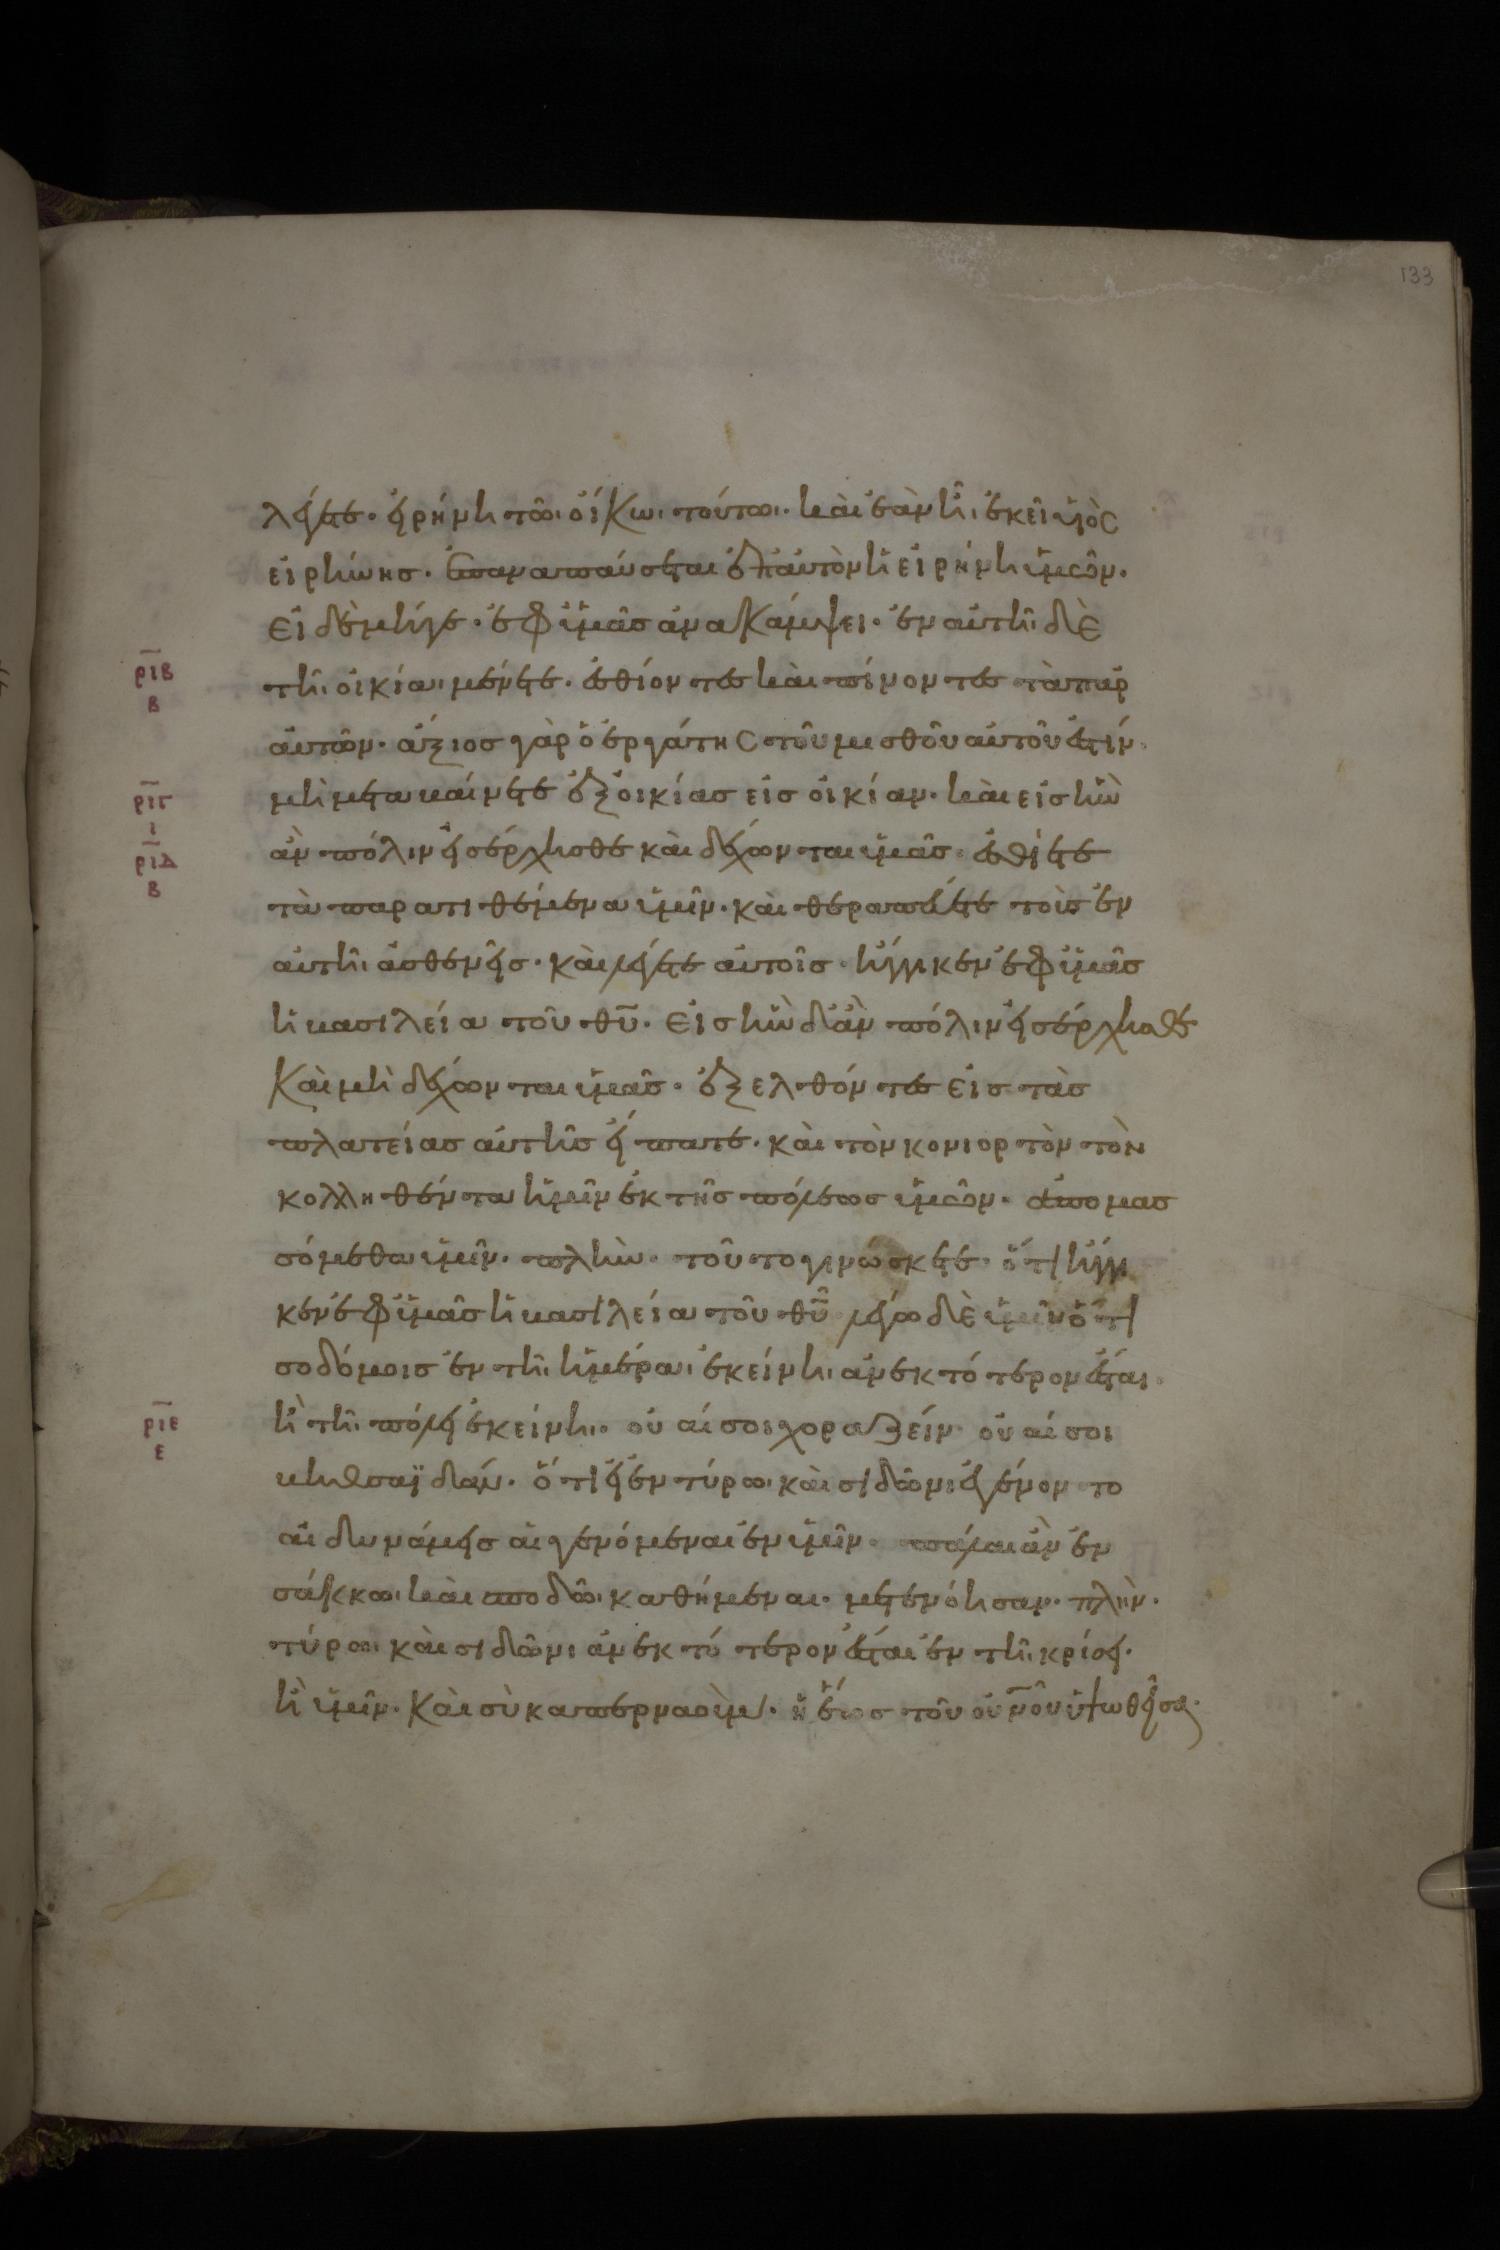 133
λέγετε· εἰρήνη τῶ οἴκω τούτω· καὶ ἐὰν ἦ ἐκεῖ υἱὸς
εἰρήνης· ἐπαναπαύσεται ἐπ αὐτὸν ἡ εἰρήνη ὑμῶν·
εἰ δὲ μήγε· ἐφ ὑμᾶς ἀνακάμψει· ἐν αὐτῆ δὲ
ριβ β
τῆ οἰκία μένετε· ἐσθίοντες καὶ πίνοντες τὰ παρ
αὐτῶν· ἄξιος γὰρ ὁ ἐργάτης τοῦ μισθοῦ αὐτοῦ ἐστίν·
ριγ ι
μὴ μεταβαίνετε ἐξ οἰκίας εἰς οἰκίαν· καὶ εἰς ἣν
ριδ β
ἂν πόλιν εἰσέρχησθε καὶ δέχωνται ὑμᾶς· ἐσθίετε
τὰ παρατιθέμενα ὑμῖν· καὶ θεραπεύετε τοὺς ἐν
αὐτῆ ἀσθενεῖς· καὶ λέγετε αὐτοῖς· ἤγγικεν ἐφ ὑμᾶς
ἡ βασιλεία τοῦ θυ· εἰς ἣν δ ἂν πόλιν εἰσέρχησθε
καὶ μὴ δέχωνται ὑμᾶς· ἐξελθόντες εἰς τὰς
πλατείας αὐτῆς εἴπατε· καὶ τὸν κονιορτὸν τὸν
κολληθέντα ἡμῖν ἐκ τῆς πόλεως ὑμῶν· ἀπομασ
σόμεθα ὑμῖν· πλὴν τοῦτο γινώσκετε· ὅτι ἤγγι
κεν ἐφ ὑμᾶς ἡ βασιλεία τοῦ θυ λέγω δὲ ὑμῖν ὅτι
σοδόμοις ἐν τῆ ἡμέρα ἐκείνη ἀνεκτότερον ἔσται·
ριε ε
ἢ τῆ πόλει ἐκείνη· οὐαί σοι χοραζείν· οὐαί σοι
βηθσαϊδάν· ὅτι εἰ ἐν τύρω καὶ σιδῶνι ἐγένοντο
αἱ δυνάμεις αἱ γενόμεναι ἐν ὑμῖν· πάλαι ἂν ἐν
σάκκω καὶ σποδῶ καθήμεναι· μετενόησαν· πλὴν·
τύρω καὶ σιδῶνι ἀνεκτότερον ἔσται ἐν τῆ κρίσει·
ἢ ὑμῖν· καὶ σὺ καπερναοὺμ· ἡ ἕως τοῦ οὐνοῦ ὑψωθεῖσα·